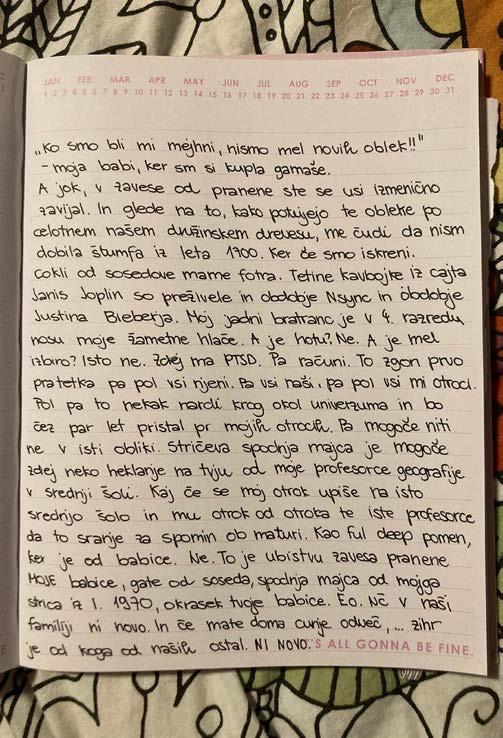 JAN FEB MAR APR MAY JUN JUL AUG SEP OCT NOV DEC
1 2 3 4 5 6 7 8 9 10 11 12 13 14 15 16 17 18 19 20 21 22 23 24 25 26 27 28 29 30 31
„Ko smo bli mi mejhni, nismo mel novih oblek!!"
- moja babi, ker sm si kupla gamaše.
A jok, v zavese od pranene ste se usi izmenično
zavijal. In glede na to, kako potujejo te obleke po
celotnem našem družinskem drevesu, me čudi da nism
dobila štumfa iz leta 1700. Ker če smo iskreni.
Cokli od sosedove mame fotra. Tetine kavbojke iz cajta
Janis Joplin so preživele in obdobje Nsync in obdobje
Justina Bieberja. Moj jadni bratranc je v 4. razredu
nosu moje žametne hlače. A je hotu? Ne. A je mel
izbiro? Isto ne. Zdej ma PTSD. Pa računi. To zgon prvo
pratetka pa pol vsi njeni. Pa vsi naši, pa pol vsi mi otroci.
Pol pa to nekak nardi krog okol univerzuma in bo
čez par let pristal pr mojih otrocih. Pa mogoče niti
ne v isti obliki. Stričeva spodnja majca je mogoče
zdej neko heklanje na tviju od moje profesorce geografije
v srednji šoli. Kaj če se moj otrok upiše na isto
srednjo šolo in mu otrok od otroka te iste profesorce
da to sranje za spomin ob maturi. Kao ful deep pomen,
ker je od babice. Ne. To je ubistvu zavesa pranene
MOJE babice, gate od soseda, spodnja majca od mojga
strica iz l. 1970, okrasek tvoje babice. Eo. Nč v naši
familiji ni novo. In če mate doma cunje odveč, ... zihr
je od koga od naših ostal. NI NOVO.'S ALL GONNA BE FINE.